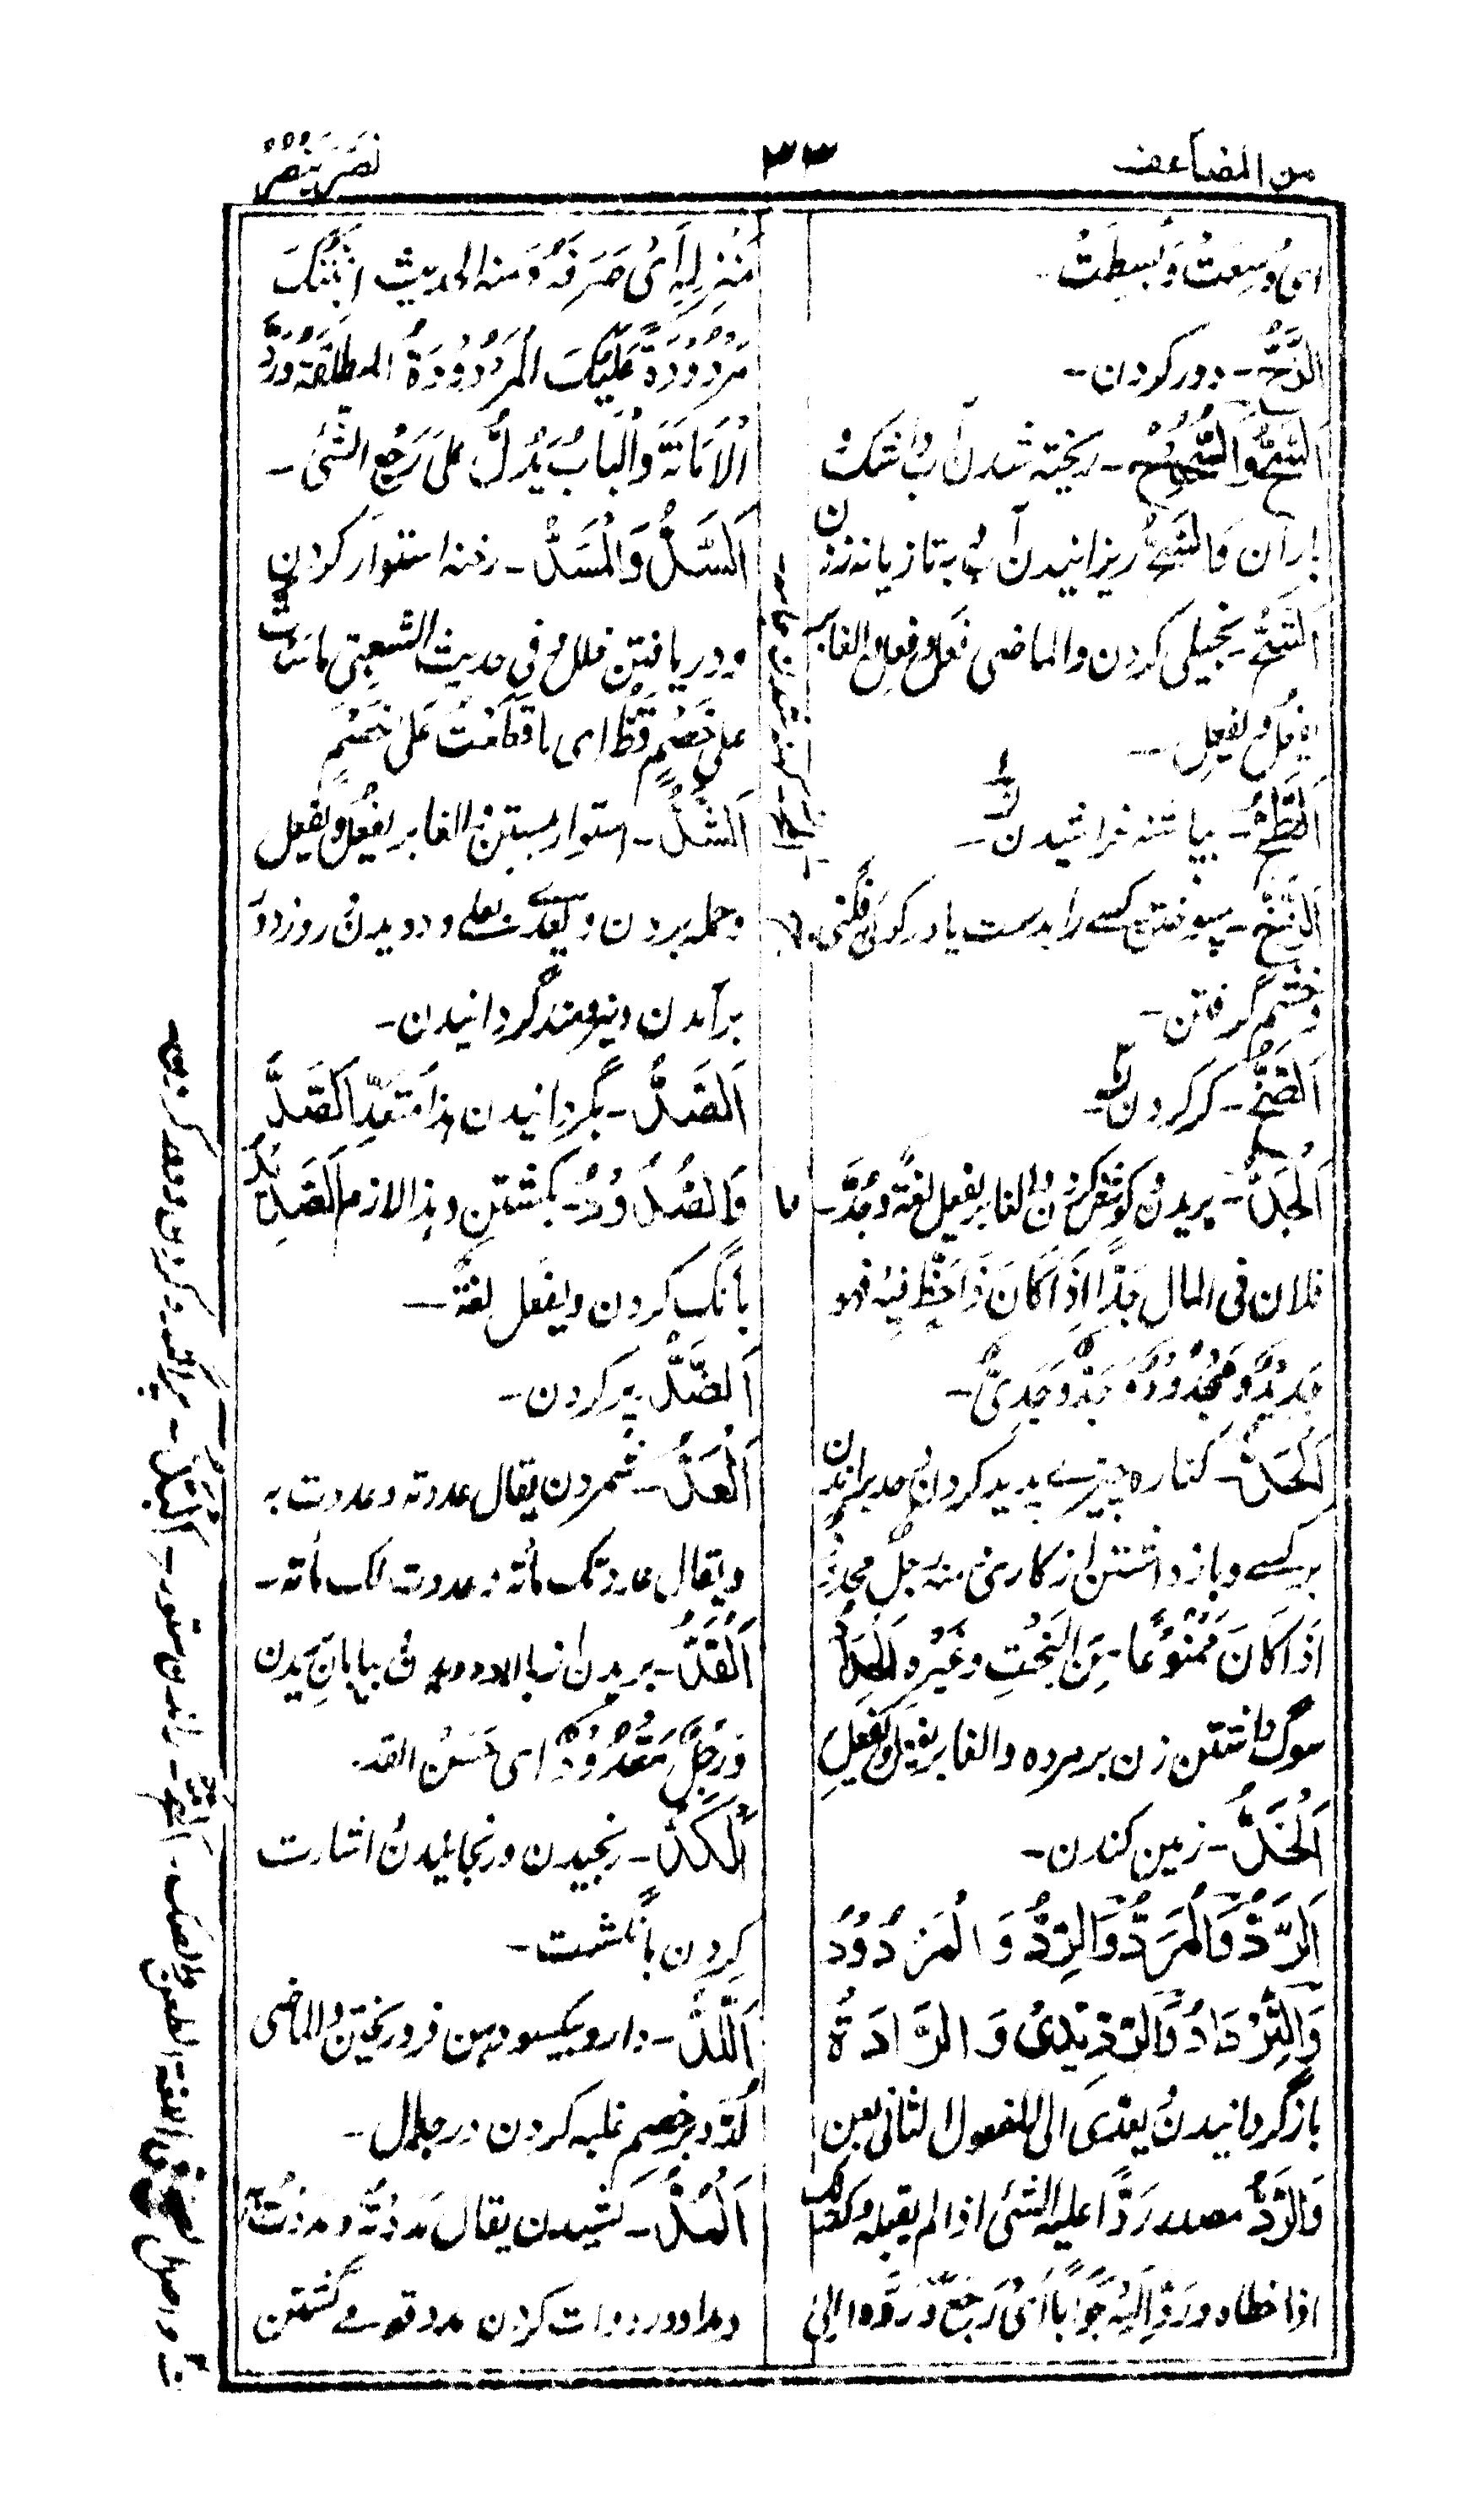 من المضاعف
۳۳
نَصَرَ يَنْصُرُ
اى وُسِعَتْ وَبُسِطَتْ
اَلدَّحُّ - دور کردن -
اَلسَّحُّ وَالسُّحُوْحُ - ریخته شدن آب و اشک
باران وَالسَّحُّ ریزانیدن آب و بتازیانه زدن
اَلشَّحُّ - بخیلی کردن والماضى فَعَلَ وفَعِلَ والغابر
یفعُل و یفعِل -
بپاشنه خراشیدن -
اَلزَّخُّ - سپوختن کسے را بدست یا در گوی فگنی
وخشم گرفتن -
اَلصَّخُّ - کر کردن
اَلْجَدُّ - بریدن و کوشش کردن والغابر یفعِل لغةً وجَدَّ
فلان فى المال جَدًّا اِذَا كَانَ ذَا حَظٍّ فِيْهِ فهو
جَدِيْدٌ وَّمَجْدُوْدٌ وَّجَدٌّ وَّجَدِّىٌّ -
اَلْحَدُّ - کناره چیزے پدید کردن و حد براندن
بر کسے و باز داشتن از کارى منه رجل محدود
اِذَا كَانَ مَمْنُوْعًا مِنَ الْبَخْتِ وَغَيْرِهٖ
سوگ داشتن زن بر مرده والغابر یفعُل ویفعِل
اَلْخَدُّ - زمین کندن -
اَلرَّدُّ وَالْمَرَدُّ وَالرِّدُّ وَالْمَرْدُوْدُ
وَالتَّرْدَادُ وَالرِّدِّيْدٰى وَالرَّادَةُ
باز گردانیدن و یعدى الى المفعول الثانى بعن
وَالرَّدُّ مصدر رَدَّ عليه الشئ اذا لم يقبله وكذلك
اذا خطاه ورَدَّ اِلَيْهِ جَوَابًا اَىْ رَجَعَ وَرَدَّهٗ اِلىٰ
مَنْزِلِهٖ اَىْ صَرَفَهٗ وَمنه الحديث اِبْنَتُكَ
مَرْدُوْدَةٌ عَلَيْكَ الْمَرْدُوْدَةُ المطلقة وَرَدَّ
الْاَمَانَةَ وَالْبَابُ يَدُلُّ عَلىٰ رَجْعِ الشَّئِ -
اَلسَّدُّ وَالْمَسَدُّ - رخنه استوار کردن
و دریافتن خلل و فى حديث الشعبى مَا سَدَدْتُ
عَلىٰ خَصْمٍ قَطُّ اى مَا قَطَعْتُ عَلىٰ خَصْمٍ
اَلشَّدُّ - استوار بستن والغابر يفعُل ويفعِل
وحمله بردن و یعدے بعلى و دویدن و روز
برآمدن و نیرومند گردانیدن -
اَلصَّدُّ - بگردانیدن هٰذا مُتَعَدٍّ اَلصَّدُّ
وَالصُّدُوْدُ - بگشتن و هذا لازم
بانگ کردن و یفعِل لغة -
اَلضَّدُّ پر کردن -
اَلْعَدُّ - شمردن يقال عددته وعددت به
ويقال عددتك مأته وعددت لك مأته -
اَلْقَدُّ - بریدن از بالا و دوال و بیابان بریدن
وَرَجُلٌ مَقْدُوْدٌ اى حَسَنُ القد
اَلْكَدُّ - رنجیدن و رنجانیدن و اشارت
کردن بانگشت -
اَللَّدُّ - دارو بیکسو دهن فرو ریختن والماضى
لُدَّ و بر خصم غلبه کردن در جدال -
اَلْمَدُّ - کشیدن يقال مَدَدْتُهٗ ومَدَدْتُ
و مداد در دوات کردن و مدد قومے گشتن